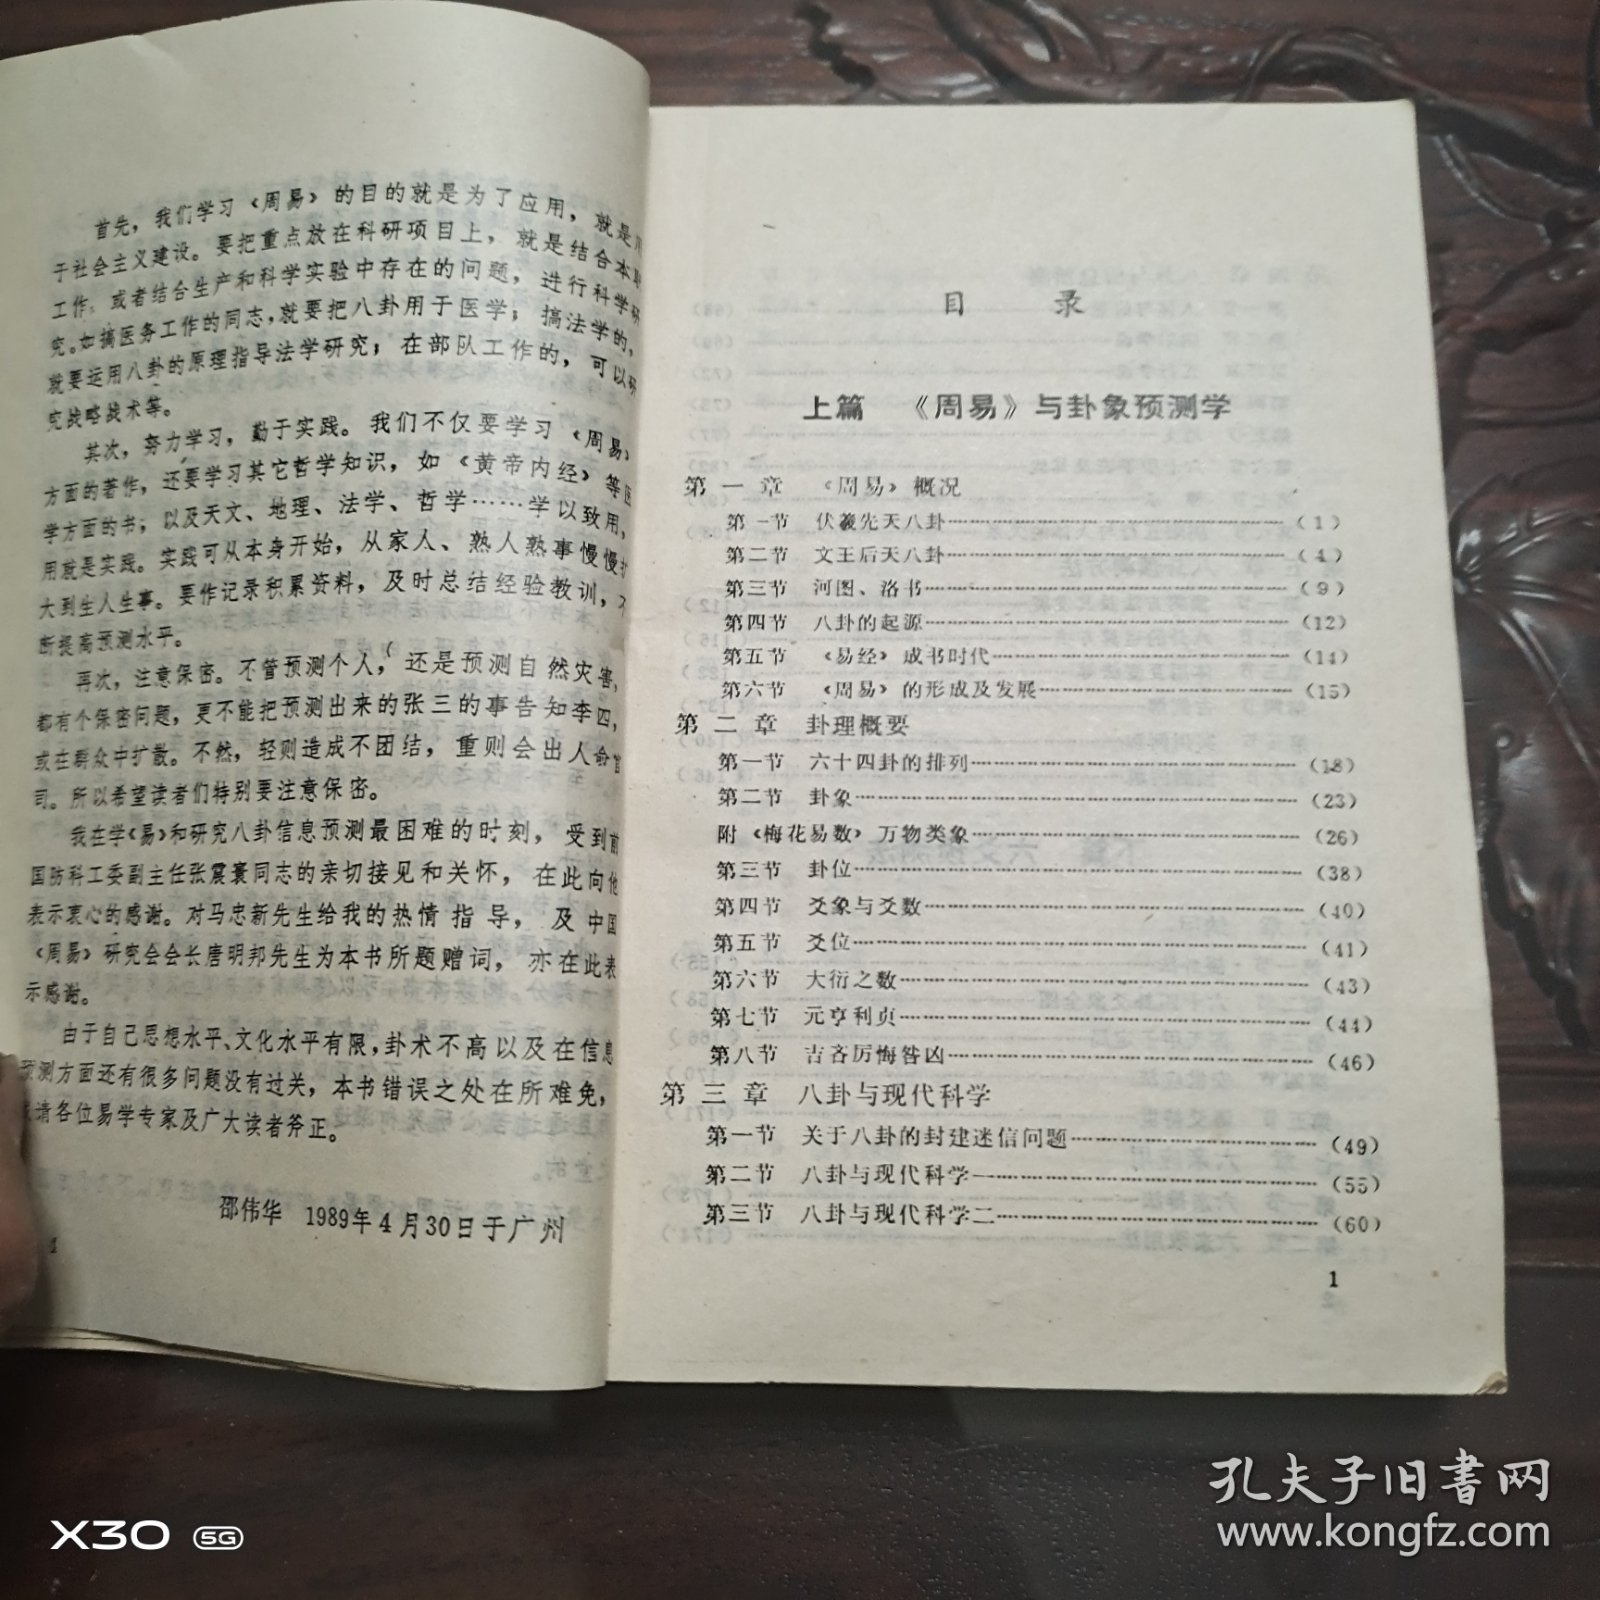 首先，我们学习《周易》的目的就是为了应用，就是
于社会主义建设。要把重点放在科研项目上，就是结合本职
工作，或者结合生产和科学实验中存在的问题，进行科学研
究。如搞医务工作的同志，就要把八卦用于医学；搞法学的，
就要运用八卦的原理指导法学研究；在部队工作的，可以研
究战略战术等。
其次，努力学习，勤于实践。我们不仅要学习《周易》
方面的著作，还要学习其它哲学知识，如《黄帝内经》等医
学方面的书；以及天文、地理、法学、哲学……学以致用，
用就是实践。实践可从本身开始，从家人、熟人熟事慢慢扩
大到生人生事。要作记录积累资料，及时总结经验教训，不
断提高预测水平。
再次，注意保密。不管预测个人，还是预测自然灾害，
都有个保密问题，更不能把预测出来的张三的事告知李四，
或在群众中扩散。不然，轻则造成不团结，重则会出人命官
司。所以希望读者们特别要注意保密。
我在学《易》和研究八卦信息预测最困难的时刻，受到前
国防科工委副主任张震寰同志的亲切接见和关怀，在此向他
表示衷心的感谢。对马忠新先生给我的热情指导，及中国
《周易》研究会会长唐明邦先生为本书所题赠词，亦在此表
示感谢。
由于自己思想水平、文化水平有限，卦术不高以及在信息
预测方面还有很多问题没有过关，本书错误之处在所难免，
请各位易学专家及广大读者斧正。
邵伟华 1989年4月30日于广州
目 录
上篇 《周易》与卦象预测学
第一章 《周易》概况
第一节 伏羲先天八卦……（1）
第二节 文王后天八卦……（4）
第三节 河图、洛书……（9）
第四节 八卦的起源……（12）
第五节 《易经》成书时代……（14）
第六节 《周易》的形成及发展……（15）
第二章 卦理概要
第一节 六十四卦的排列……（18）
第二节 卦象……（23）
附《梅花易数》万物类象……（26）
第三节 卦位……（38）
第四节 爻象与爻数……（40）
第五节 爻位……（41）
第六节 大衍之数……（43）
第七节 元亨利贞……（44）
第八节 吉吝厉悔咎凶……（46）
第三章 八卦与现代科学
第一节 关于八卦的封建迷信问题……（49）
第二节 八卦与现代科学一……（55）
第三节 八卦与现代科学二……（60）
1
孔夫子旧书网
www.kongfz.com
X30 5G